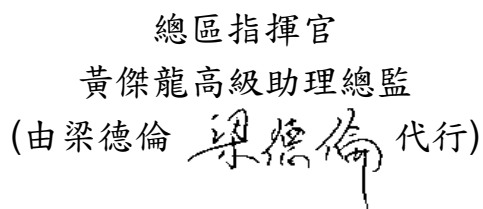 總區指揮官
黃傑龍高級助理總監
(由梁德倫 梁德倫 代行)